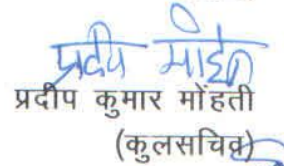 प्रदीप मोहंती
प्रदीप कुमार मोंहती
(कुलसचिव)